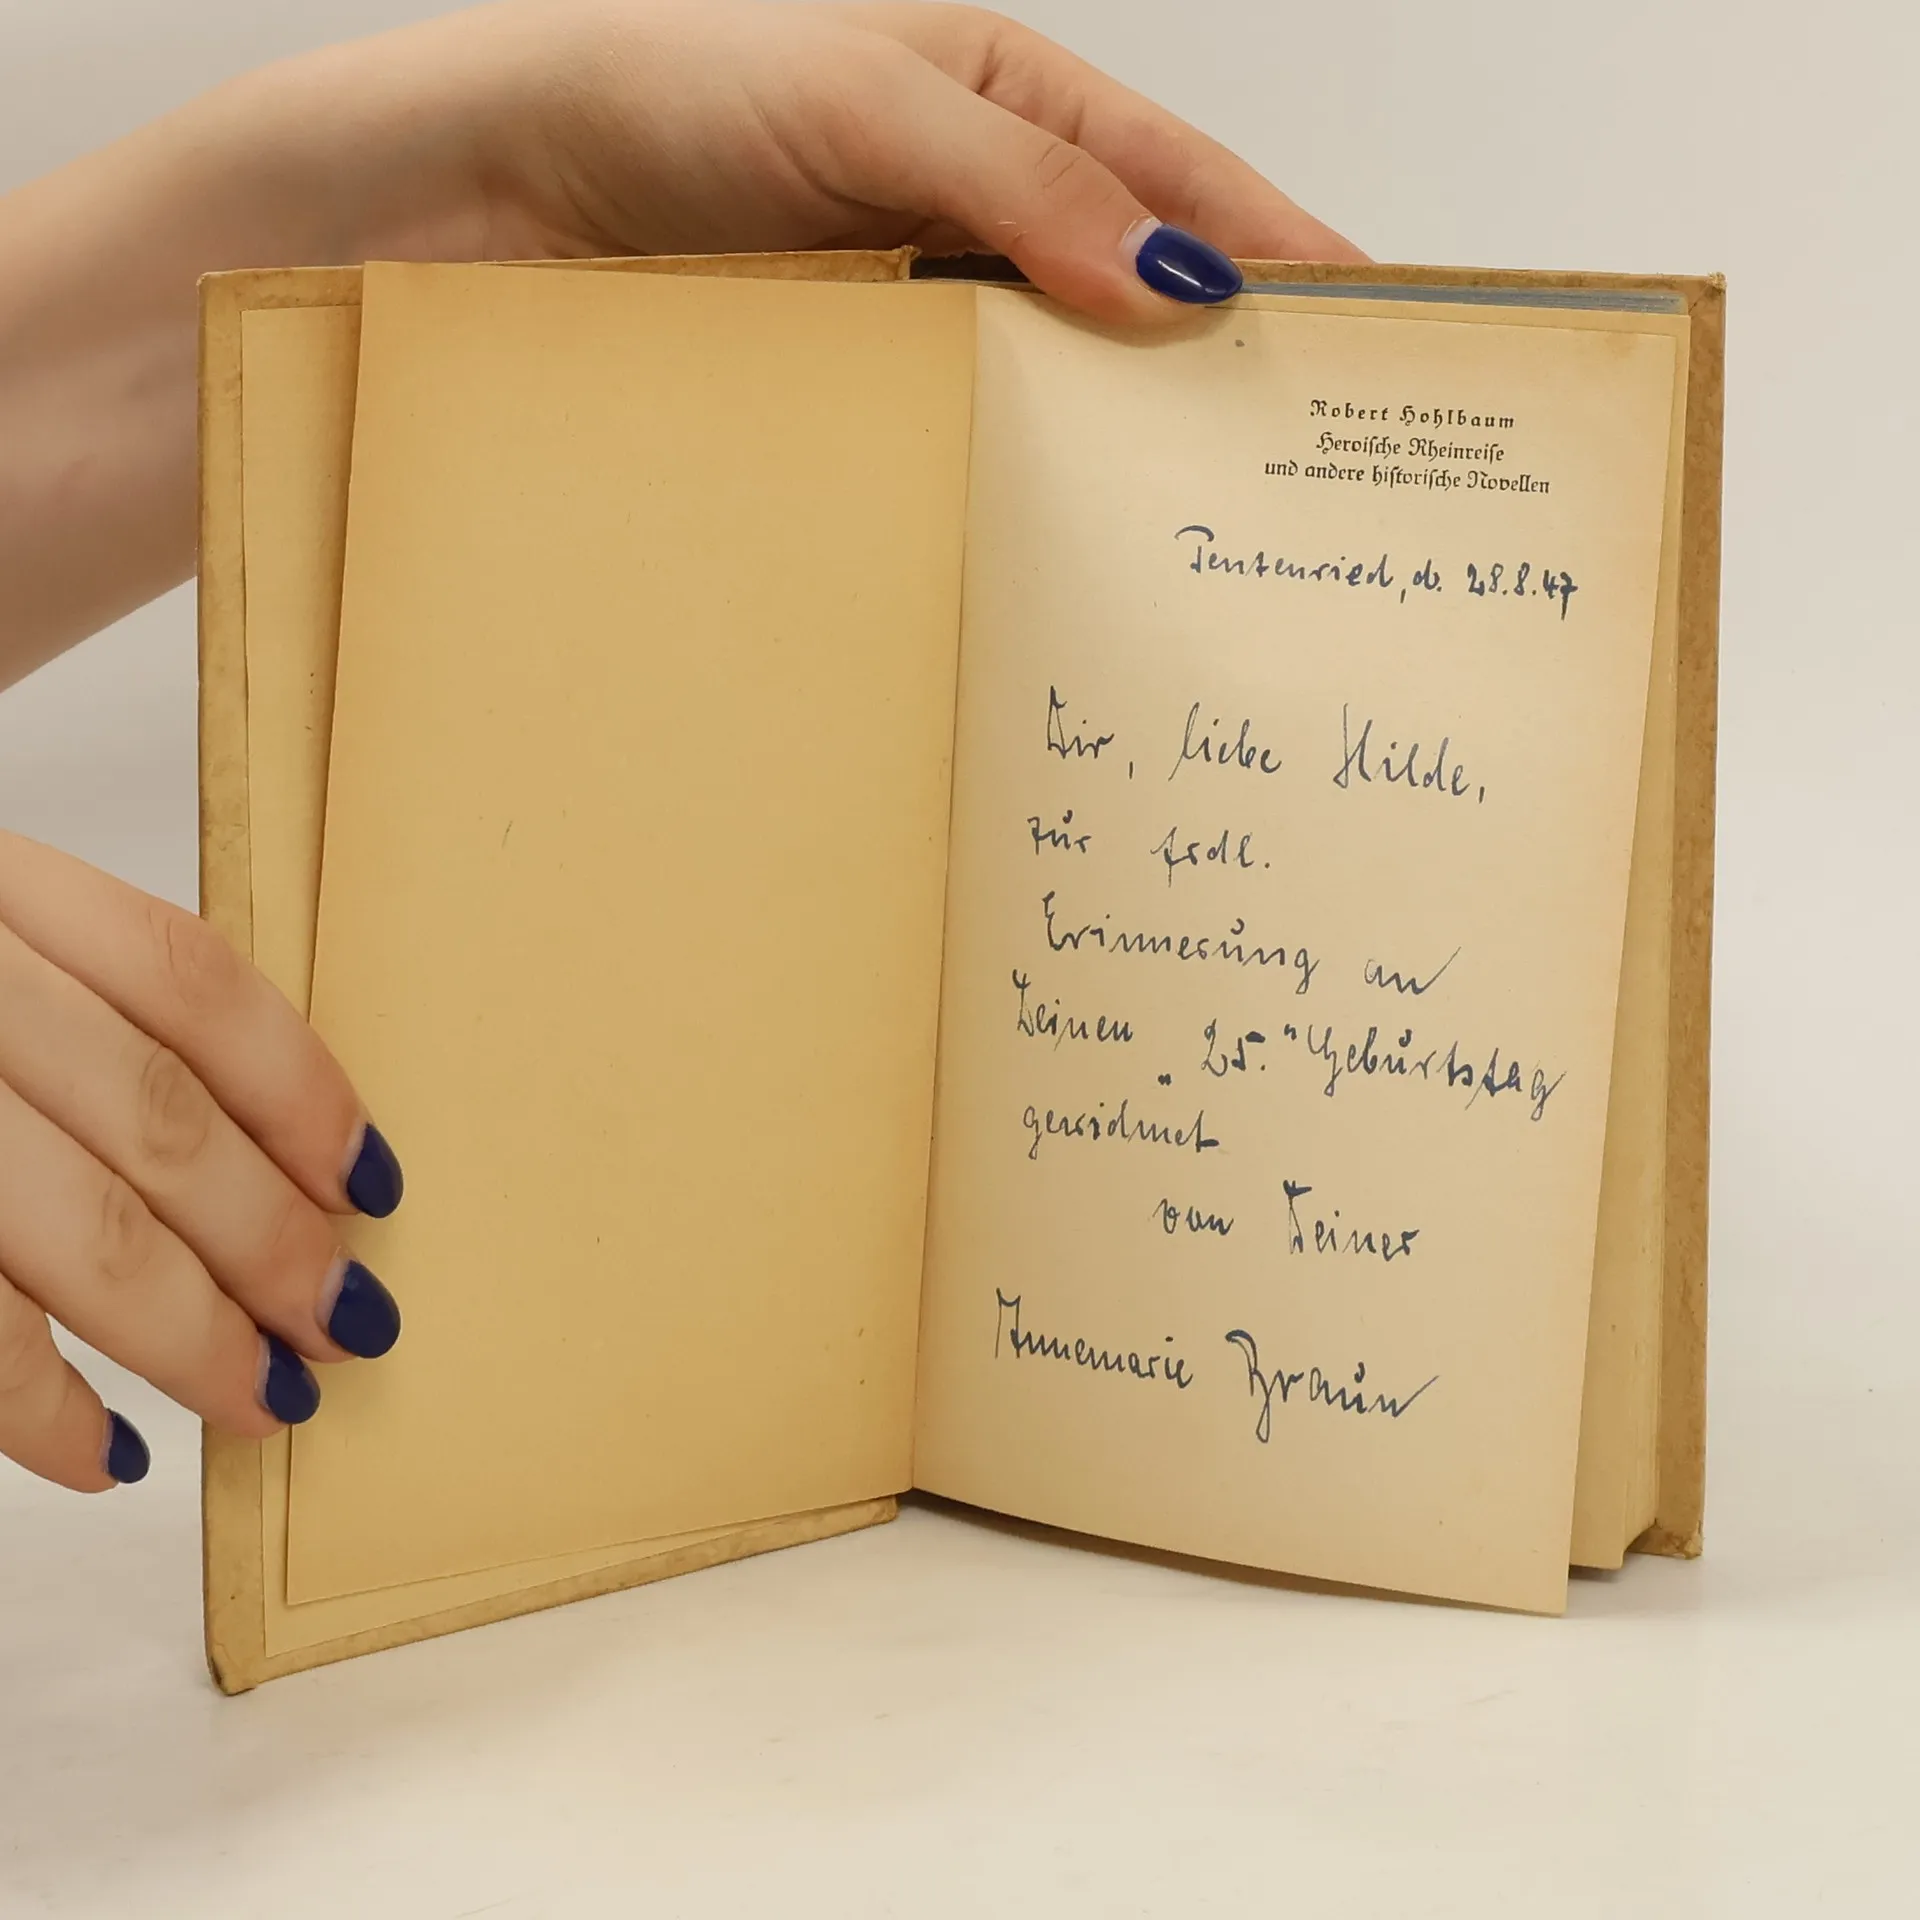 Robert Hohlbaum
Heroische Rheinreise
und andere historische Novellen
Pentenried, d. 28.8.47
Dir, liebe Hilde,
zur frdl.
Erinnerung an
Deinen „25.“ Geburtstag
gewidmet
von Deiner
Annemarie Braun